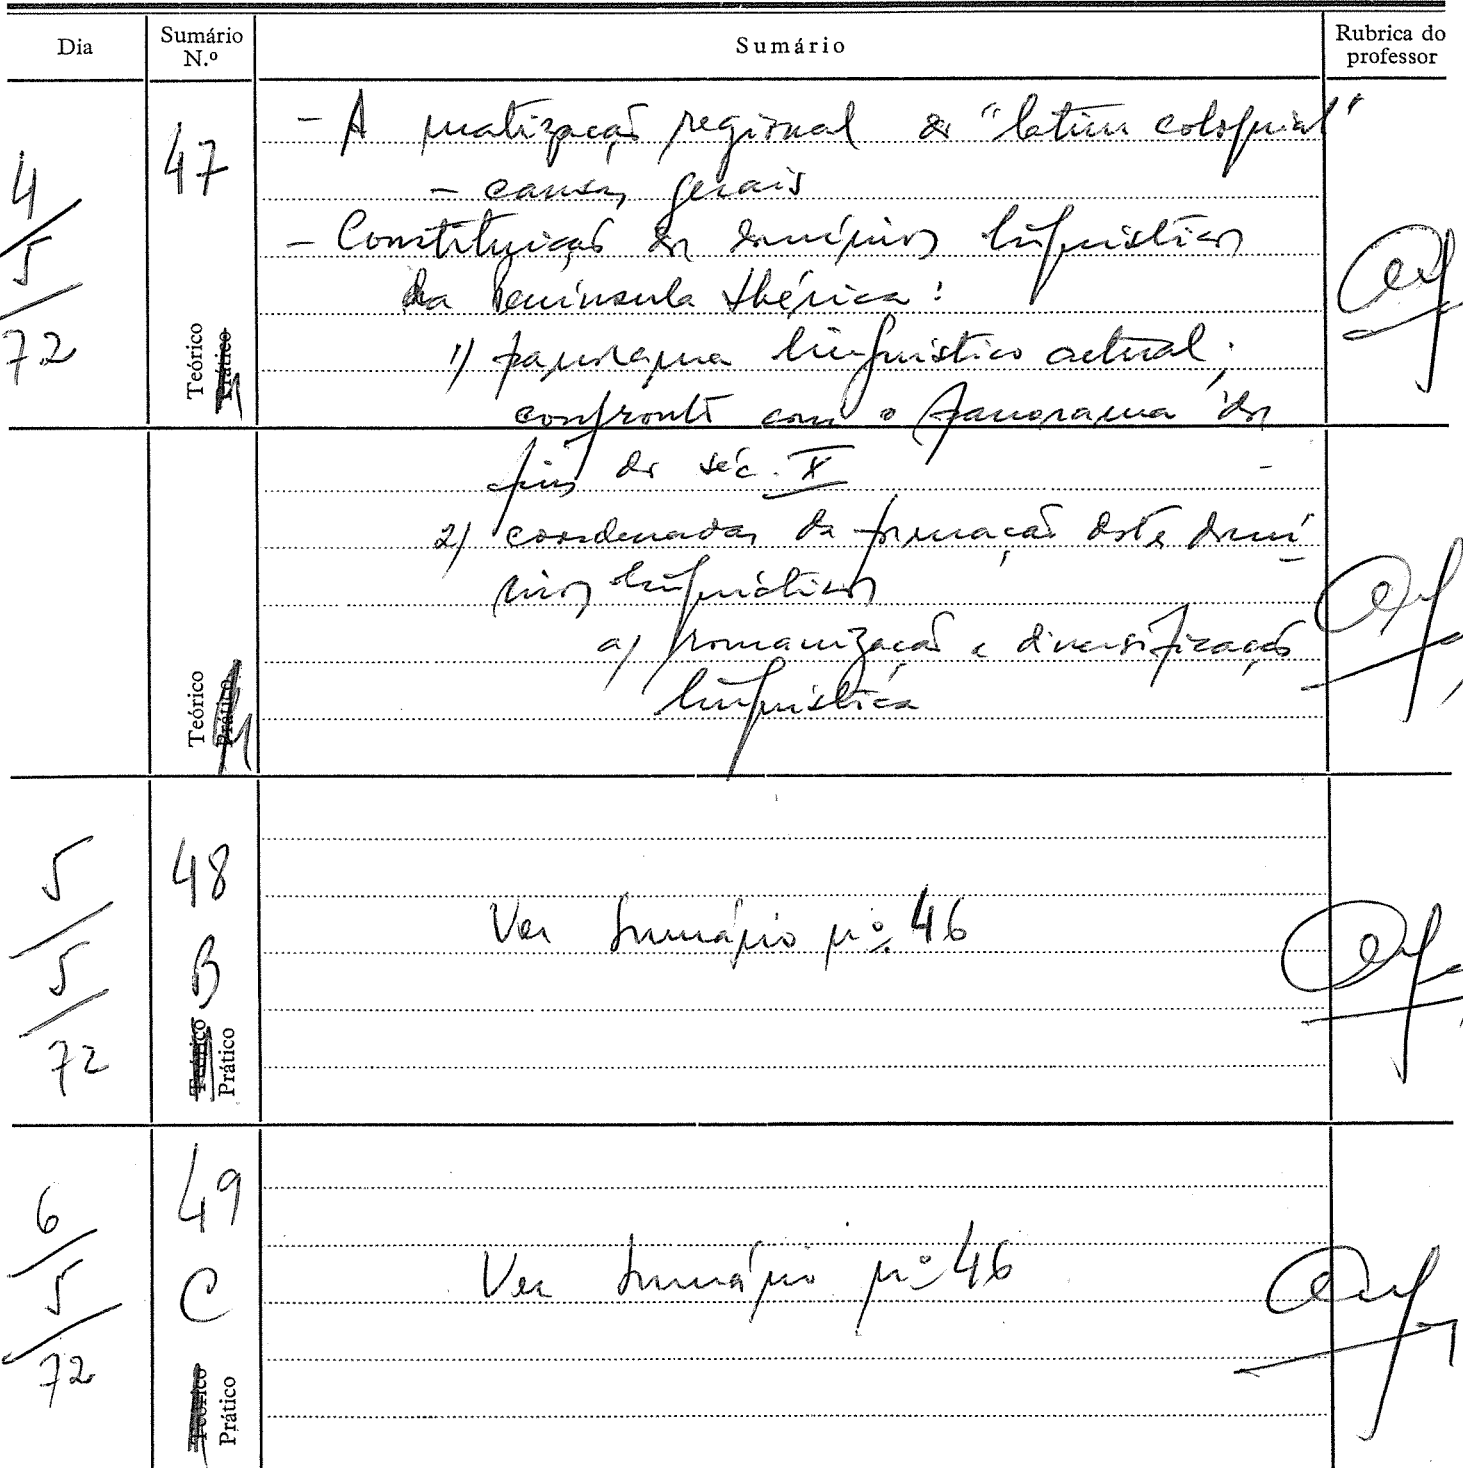 Dia
Sumário N.º
Sumário
Rubrica do professor
4/5/72
47
Teórico
Prático
- A matização regional do "latim coloquial"
- causas gerais
- Constituição dos domínios linguísticos
da Península Ibérica:
1) panorama linguístico actual;
confronto com o panorama dos
fins do séc. X
2) coordenadas da formação destes domí-
nios linguísticos
a) romanização e diversificação
linguística
Teórico
Prático
5/5/72
48
B
Teórico
Prático
Ver Sumário nº 46
6/5/72
49
C
Teórico
Prático
Ver Sumário nº 46